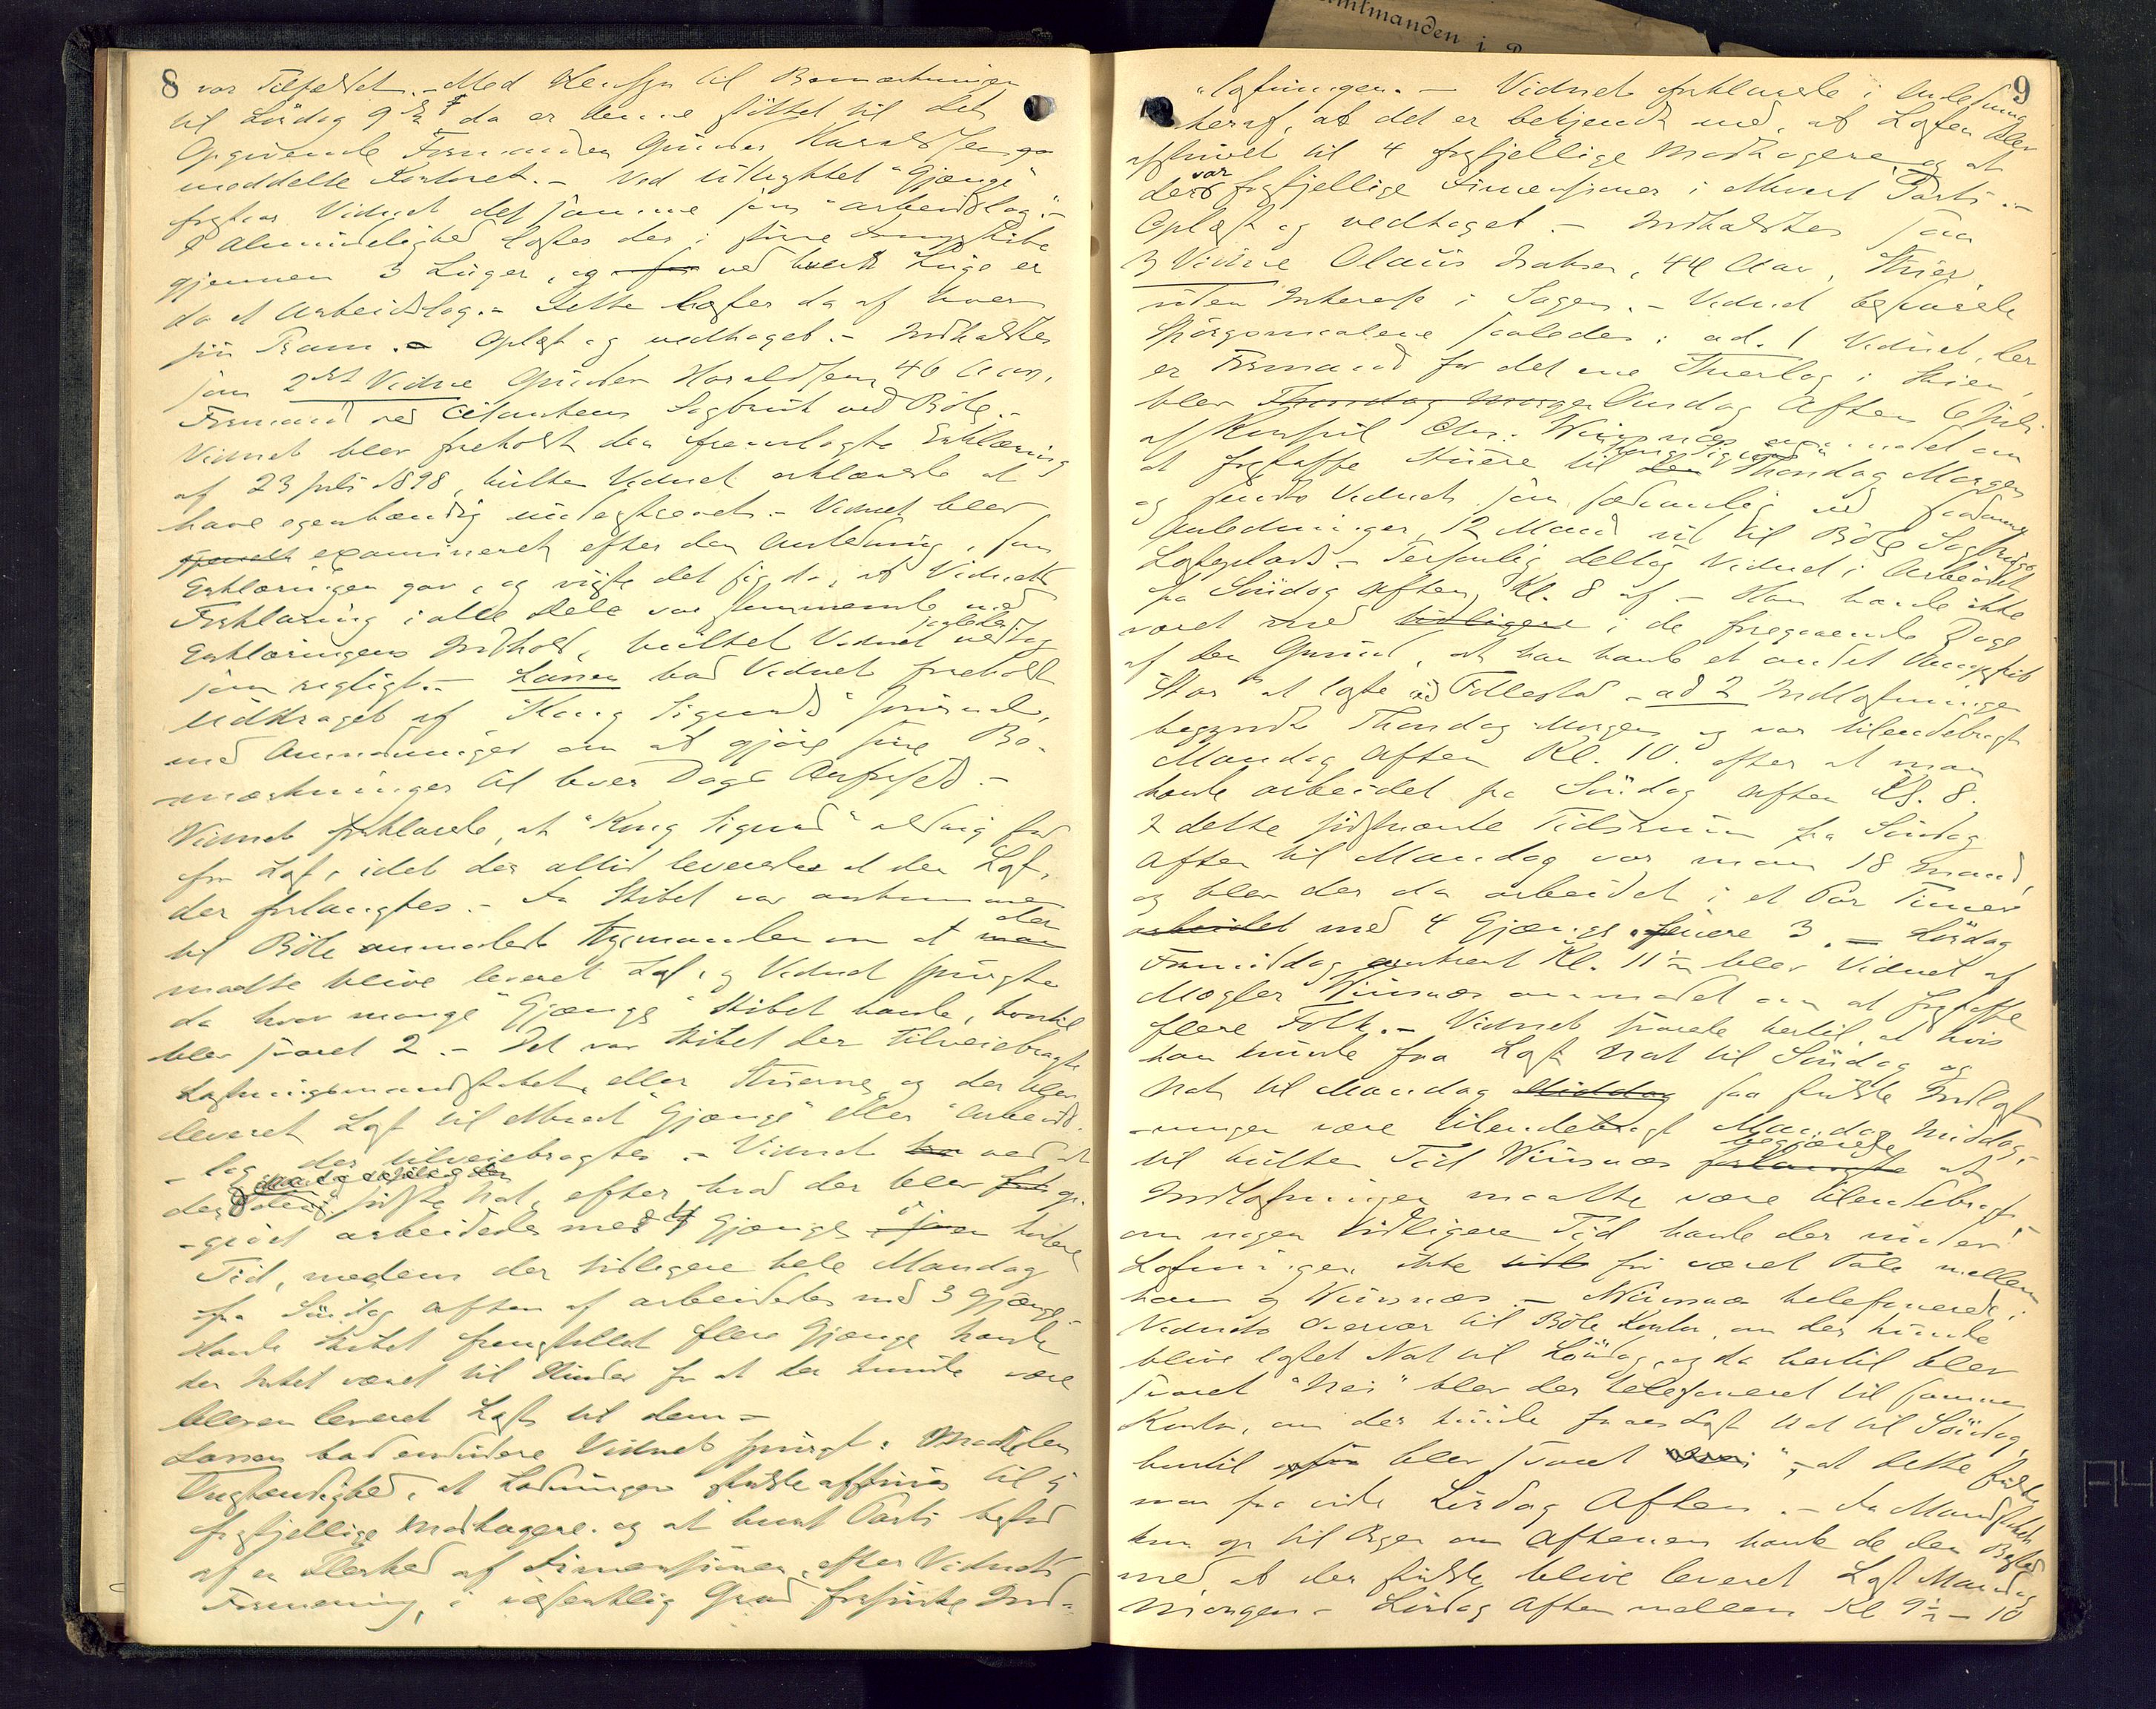 amtmanden i
8 var Tilfældet. – Med Hensyn til Bemærkningen
til Lördag 9de da er denne støttet til det
Opgivende Formanden Gunder Haraldsen
meddelte Kontoret. – Ved Udtrykket "Gjænge"
forstaar Vidnet det samme som "arbeidslag". –
I Almindelighed lastes der i större Dampskibe
gjennem 3 Luger, og ved hver Luge er
da et Arbeidslag. – Dette laster da af hver
sin Pram. – Oplæst og vedtaget. – Indkaldtes
som 2det Vidne Gunder Haraldsen, 46 Aar,
Formand ved Citantens Sagbrug ved Böle. –
Vidnet blev foreholdt den fremlagte Erklæring
af 23 Juli 1898, hvilken Vidnet erklærede at
have egenhændig underskrevet. – Vidnet blev
examineret efter den Anledning, som
Erklæringen gav, og viste det sig da, at Vidnets
Forklaring i alle Dele var stemmende med
Erklæringens Indhold, hvilket Vidnet saaledes vedtog
som rigtigt. – Larsen bad Vidnet foreholdt
Uddraget af "Kong Sigurds" Journal,
med Anmodninger om at gjöre sine Be-
mærkninger til hver Dags Anförsel. –
Vidnet forklarede, at "Kong Sigurd" aldrig stod
for Last, idet der altid leveredes det den Last,
der forlangtes. – Da Skibet var ankommet
til Böle anmodede Styrmanden om at der
maatte blive leveret Last, og Vidnet spurgte
da hvor mange "Gjænge" Skibet havde, hvortil
blev svaret 2. – Det var Skibet der tilveiebragte
Lastningsmandskabet, eller Stuerne, og der blev
leveret Last til ethvert "Gjænge" eller "Arbeids-
lag", der tilveiebragtes. – Vidnet ved at
der sidste Nat, efter hvad der blev op-
givet arbeidedes med 4 Gjænge i kortere
Tid, medens der tidligere hele Mandag
fra Söndag Aften af arbeidedes med 3 Gjænge.
Havde Skibet fremstillet flere Gjænge havde
der Intet været til Hinder for at der kunde være
bleven leveret Last til dem. –
Larsen bad endvidere Vidnet spurgt: Medfører den
Omstændighed, at Ladningen skulde afskibes til 4
forskjellige Modtagere og at hvert Parti bestod
af en Flerhed af Dimensioner, efter Vidnets
Formening, i væsentlig Grad forsinke Ind-
9
"lastningen. – Vidnet forklarede i Anledning
heraf, at det er bekjendt med, at Lasten blev
afskibet til 4 forskjellige Modtagere og at
der var forskjellige Dimensioner i ethvert Parti. –
Oplæst og vedtaget. – Indkaldtes som
3 Vidne Olaüs Isaksen, 44 Aar, Stuer,
uden Interesse i Sagen. – Vidnet besvarede
Spörgsmaalene saaledes: ad. 1 Vidnet, der
er Formand for det ene Stuerlag i Skien,
blev Onsdag Aften 6 Juli
af Konsul Chr. Wiirsnæs anmodet om
at forskaffe Stuere til "Kong Sigurd" Thorsdag Morgen
og sendte Vidnet som sædvanlig ved saadanne
Anledninger, 12 Mand ud til Böle Sagbrugs
Lasteplads. – Personlig deltog Vidnet i Arbeidet
fra Söndag Aften Kl. 8 af. – Han havde ikke
været med i de foregaaende Dage
af den Grund, at han havde et andet Dampskib
"Star" at laste ved Follestad – ad 2 Indlastningen
begyndte Thorsdag Morgen og var tilendebragt
Mandag Aften Kl. 10. efter at man
havde arbeidet fra Söndag Aften Kl. 8.
I dette sidstnævnte Tidsrum fra Söndag
Aften til Mandag var man 18 Mand,
og blev der da arbeidet i et Par Timer
med 4 Gjænge, senere 3. – Lördag
Formiddag omtrent Kl. 11 ½ blev Vidnet af
Mægler Wiirsnæs anmodet om at forskaffe
flere Folk. – Vidnet svarede hertil, at hvis
han kunde faa Last Nat til Söndag og
Nat til Mandag saa skulde Indlast-
ningen være tilendebragt Mandag Middag,
til hvilken Tid Wiirsnæs begjærede at
Indlastningen maatte være tilendebragt,
om nogen tidligere Tid havde der under
Lastningen ikke för været Tale mellem
ham og Wiirsnæs. – Wiirsnæs telefonerede i
Vidnets Overvær til Böle Kontor, om der kunde
blive lastet Nat til Söndag, og da hertil blev
svaret "Nei" blev der telefoneret til samme
Kontor, om der kunde faaes Last Nat til Söndag,
hertil blev svaret –, at dette skulde
man faa vide Lördag Aften. – Da Mandskabet
kom op til Byen om Aftenen havde de den Besked
med, at der skulde blive leveret Last Mandag
Morgen. – Lördag Aften mellem Kl 9 ½ – 10